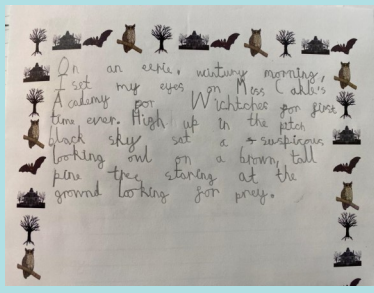 On an eerie, wintury morning,
I set my eyes on Miss Cakls's
Academy for Wichtches for first
time ever. High up in the pitch
black sky sat a suspicous
looking owl on a brown, tall
pine tree staring at the
ground looking for prey.